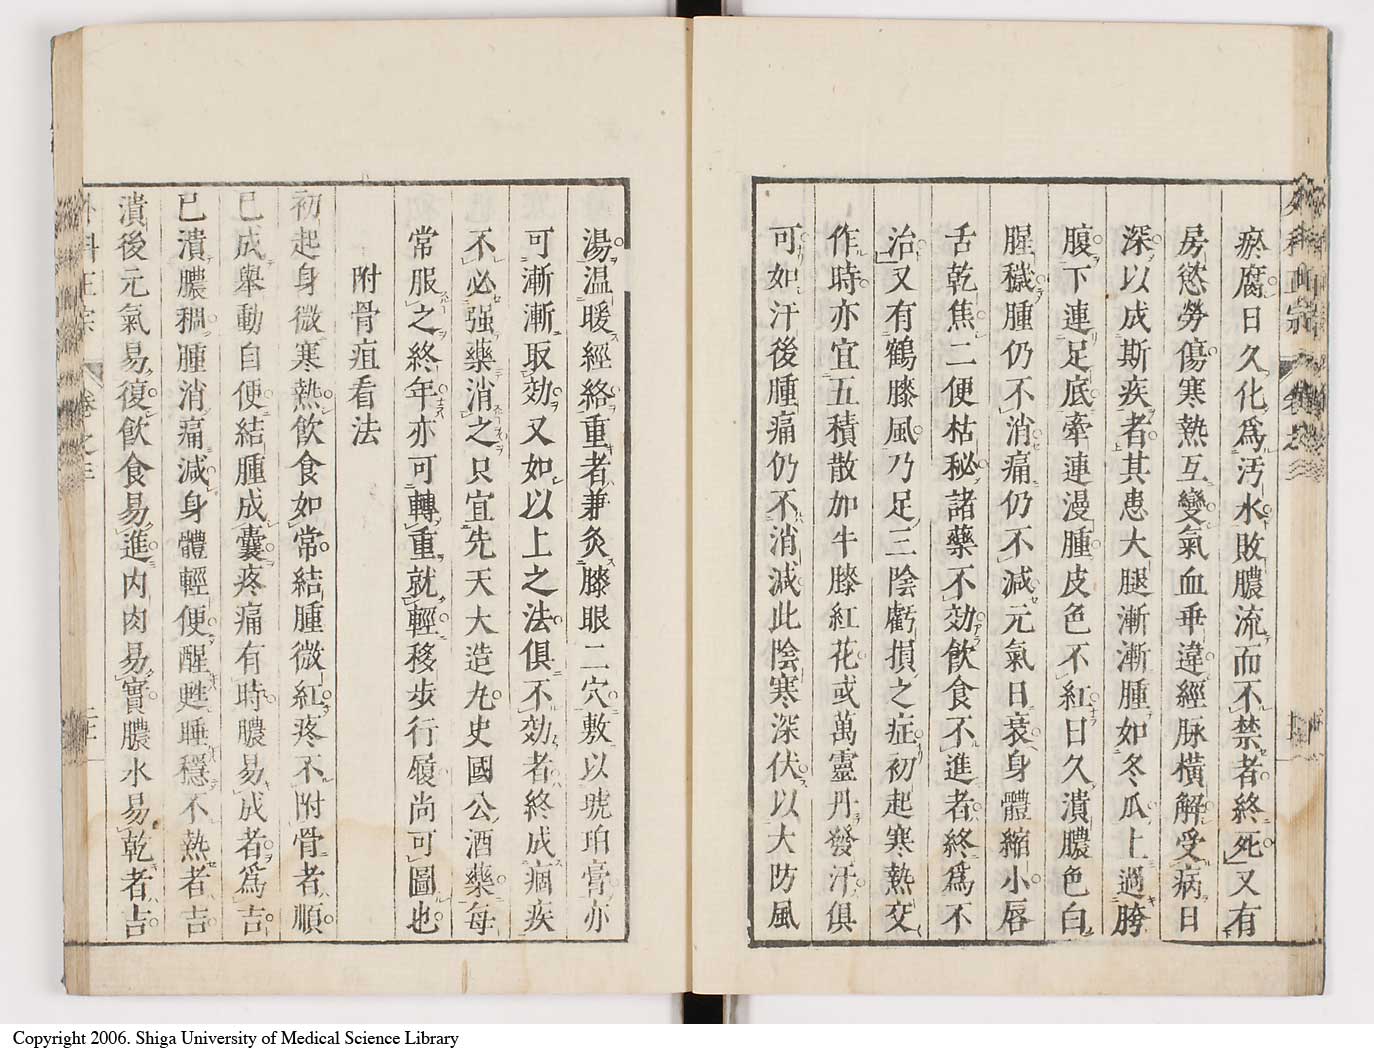 瘀腐日久化為汚水敗膿流而不禁者終死又有
房慾勞傷寒熱互變氣血乖違經脉橫解受病日
深以成斯疾者其患大腿漸漸腫如冬瓜上過胯
腹下連足底牽連漫腫皮色不紅日久潰膿色白
腥穢腫仍不消痛仍不減元氣日衰身體縮小唇
舌乾焦二便枯秘諸藥不効飲食不進者終為不
治又有鶴膝風乃足三陰虧損之症初起寒熱交
作時亦宜五積散加牛膝紅花或萬靈丹發汗俱
可如汗後腫痛仍不消減此陰寒深伏以大防風
湯温暖經絡重者兼灸膝眼二穴敷以琥珀膏亦
可漸漸取効又如以上之法俱不効者終成痼疾
不必强藥消之只宜先天大造丸史國公酒藥每
常服之終年亦可轉重就輕移步行履尚可圖也
附骨疽看法
初起身微寒熱飲食如常結腫微紅疼不附骨者順
已成舉動自便結腫成囊疼痛有時膿易成者為吉
已潰膿稠腫消痛減身體輕便醒甦睡穩不熱者吉
潰後元氣易復飲食易進内肉易實膿水易乾者吉
外科正宗 卷之三
Copyright 2006. Shiga University of Medical Science Library